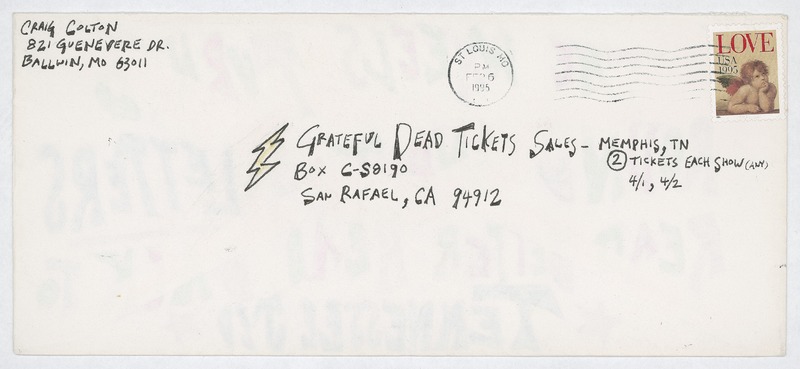 CRAIG COLTON
821 GUENEVERE DR.
BALLWIN, MO 63011
ST LOUIS MO
PM
FEB 6
1995
LOVE
USA
1995
GRATEFUL DEAD TICKETS SALES – MEMPHIS, TN
BOX C-S8190
② TICKETS EACH SHOW (ANY)
SAN RAFAEL, CA 94912
4/1, 4/2